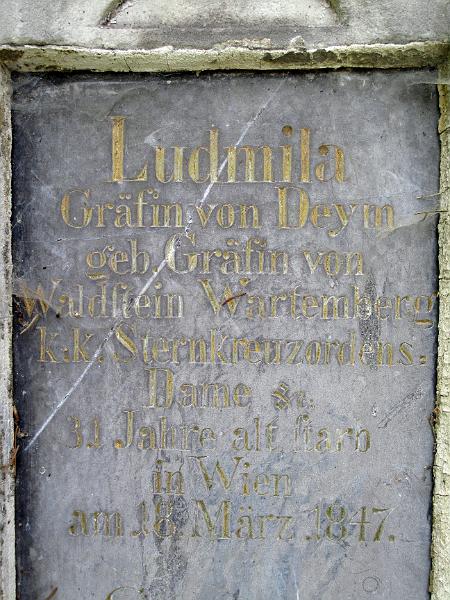 Ludmila
Gräfin von Deym
geb. Gräfin von
Waldſtein Wartemberg
k.k. Sternkreuzordens:
Dame &c.
31 Jahre alt ſtarb
in Wien
am 18. März 1847.